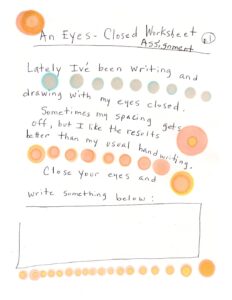 An Eyes-Closed Worksheet #1
Assignment
Lately I've been writing and
drawing with my eyes closed.
Sometimes my spacing gets
off, but I like the results
better than my usual handwriting.
Close your eyes and
write something below: